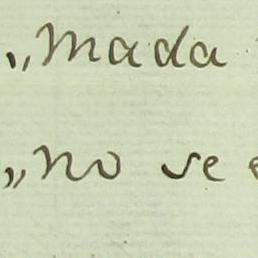 „Mada
„no se